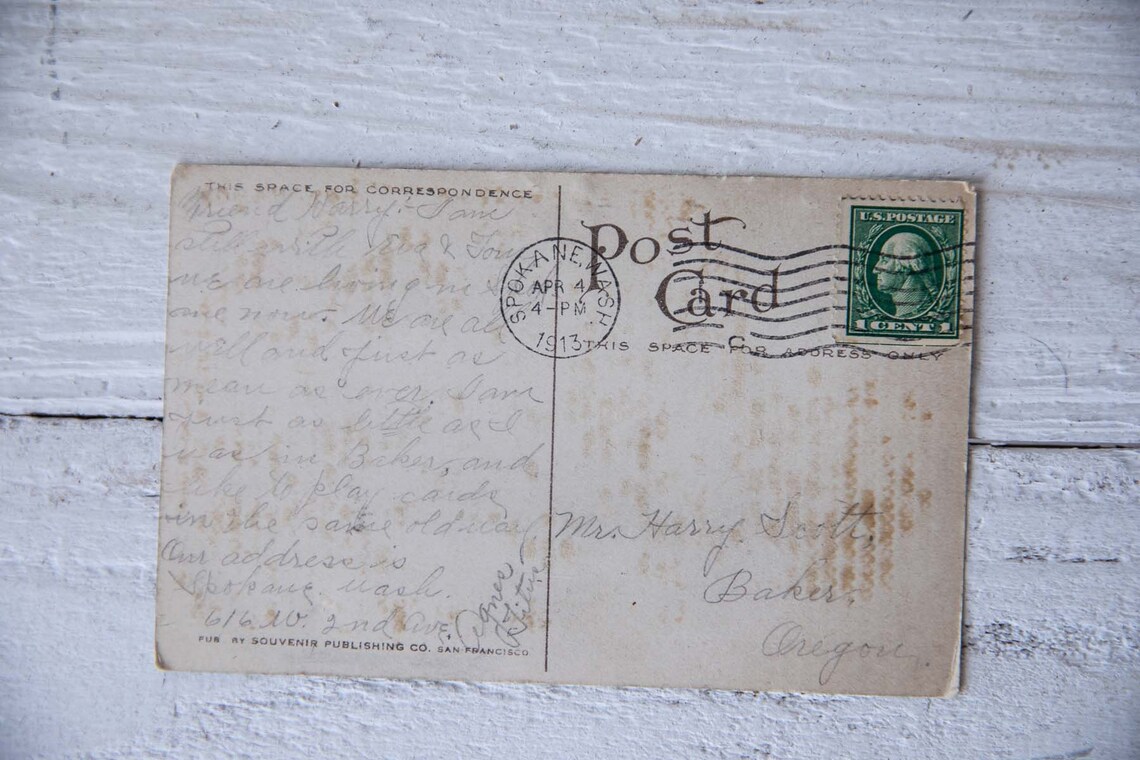 THIS SPACE FOR CORRESPONDENCE
Friend Harry:- I am
still with Eva & Tom
we are living in
one now. We are all
well and just as
mean as ever. I am
just as little as I
was in Baker, and
like to play cards
in the same old way
Our address is
Spokane Wash.
616 W. 2nd Ave.
Agnes
PUB BY SOUVENIR PUBLISHING CO. SAN FRANCISCO
Post
Card
SPOKANE, WASH.
APR 4
4-PM
1913
U.S. POSTAGE
1 CENT 1
THIS SPACE FOR ADDRESS ONLY
Mr. Harry Scott,
Baker,
Oregon.